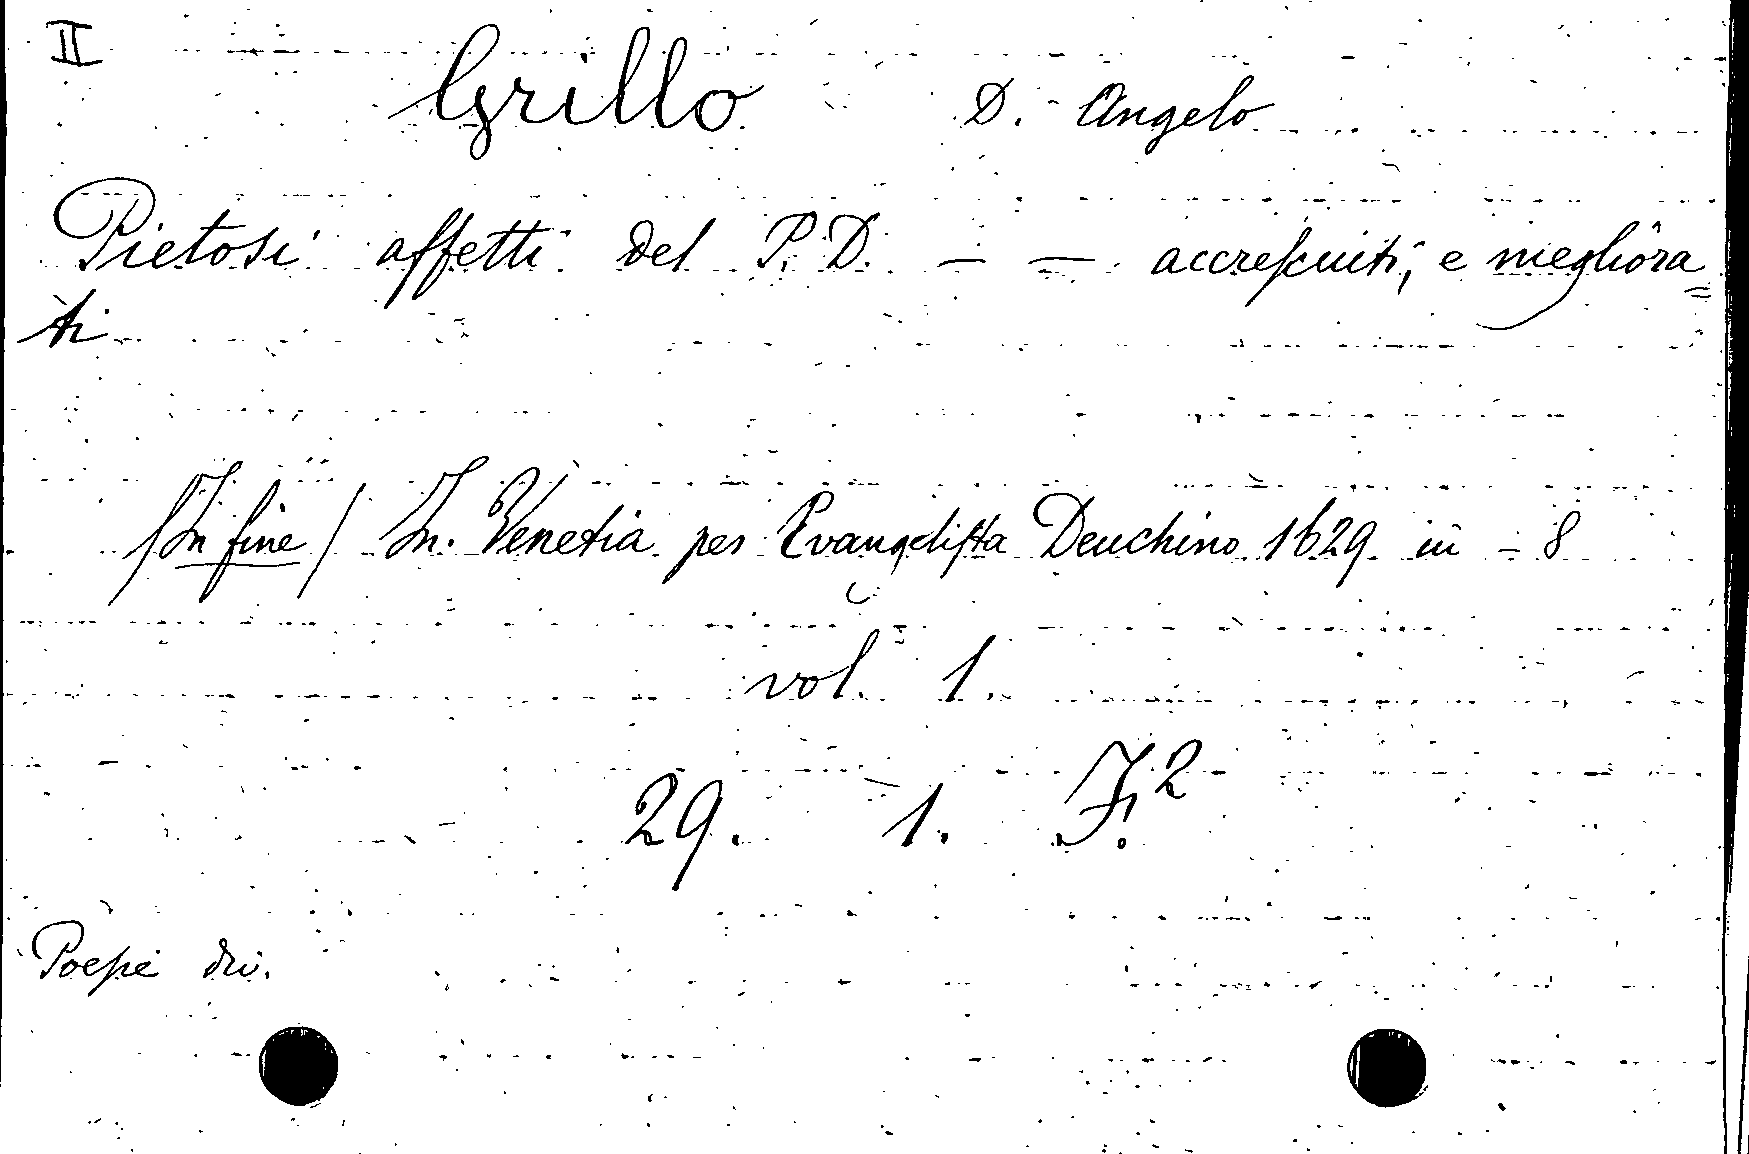 II
Grillo D. Angelo
Pietosi affetti del P. D. — — accresciuti, e megliora=
ti
/In fine/ In Venetia per Evangelista Deuchino 1629 in - 8
vol. 1.
29. 1. F.2
Poesie div.